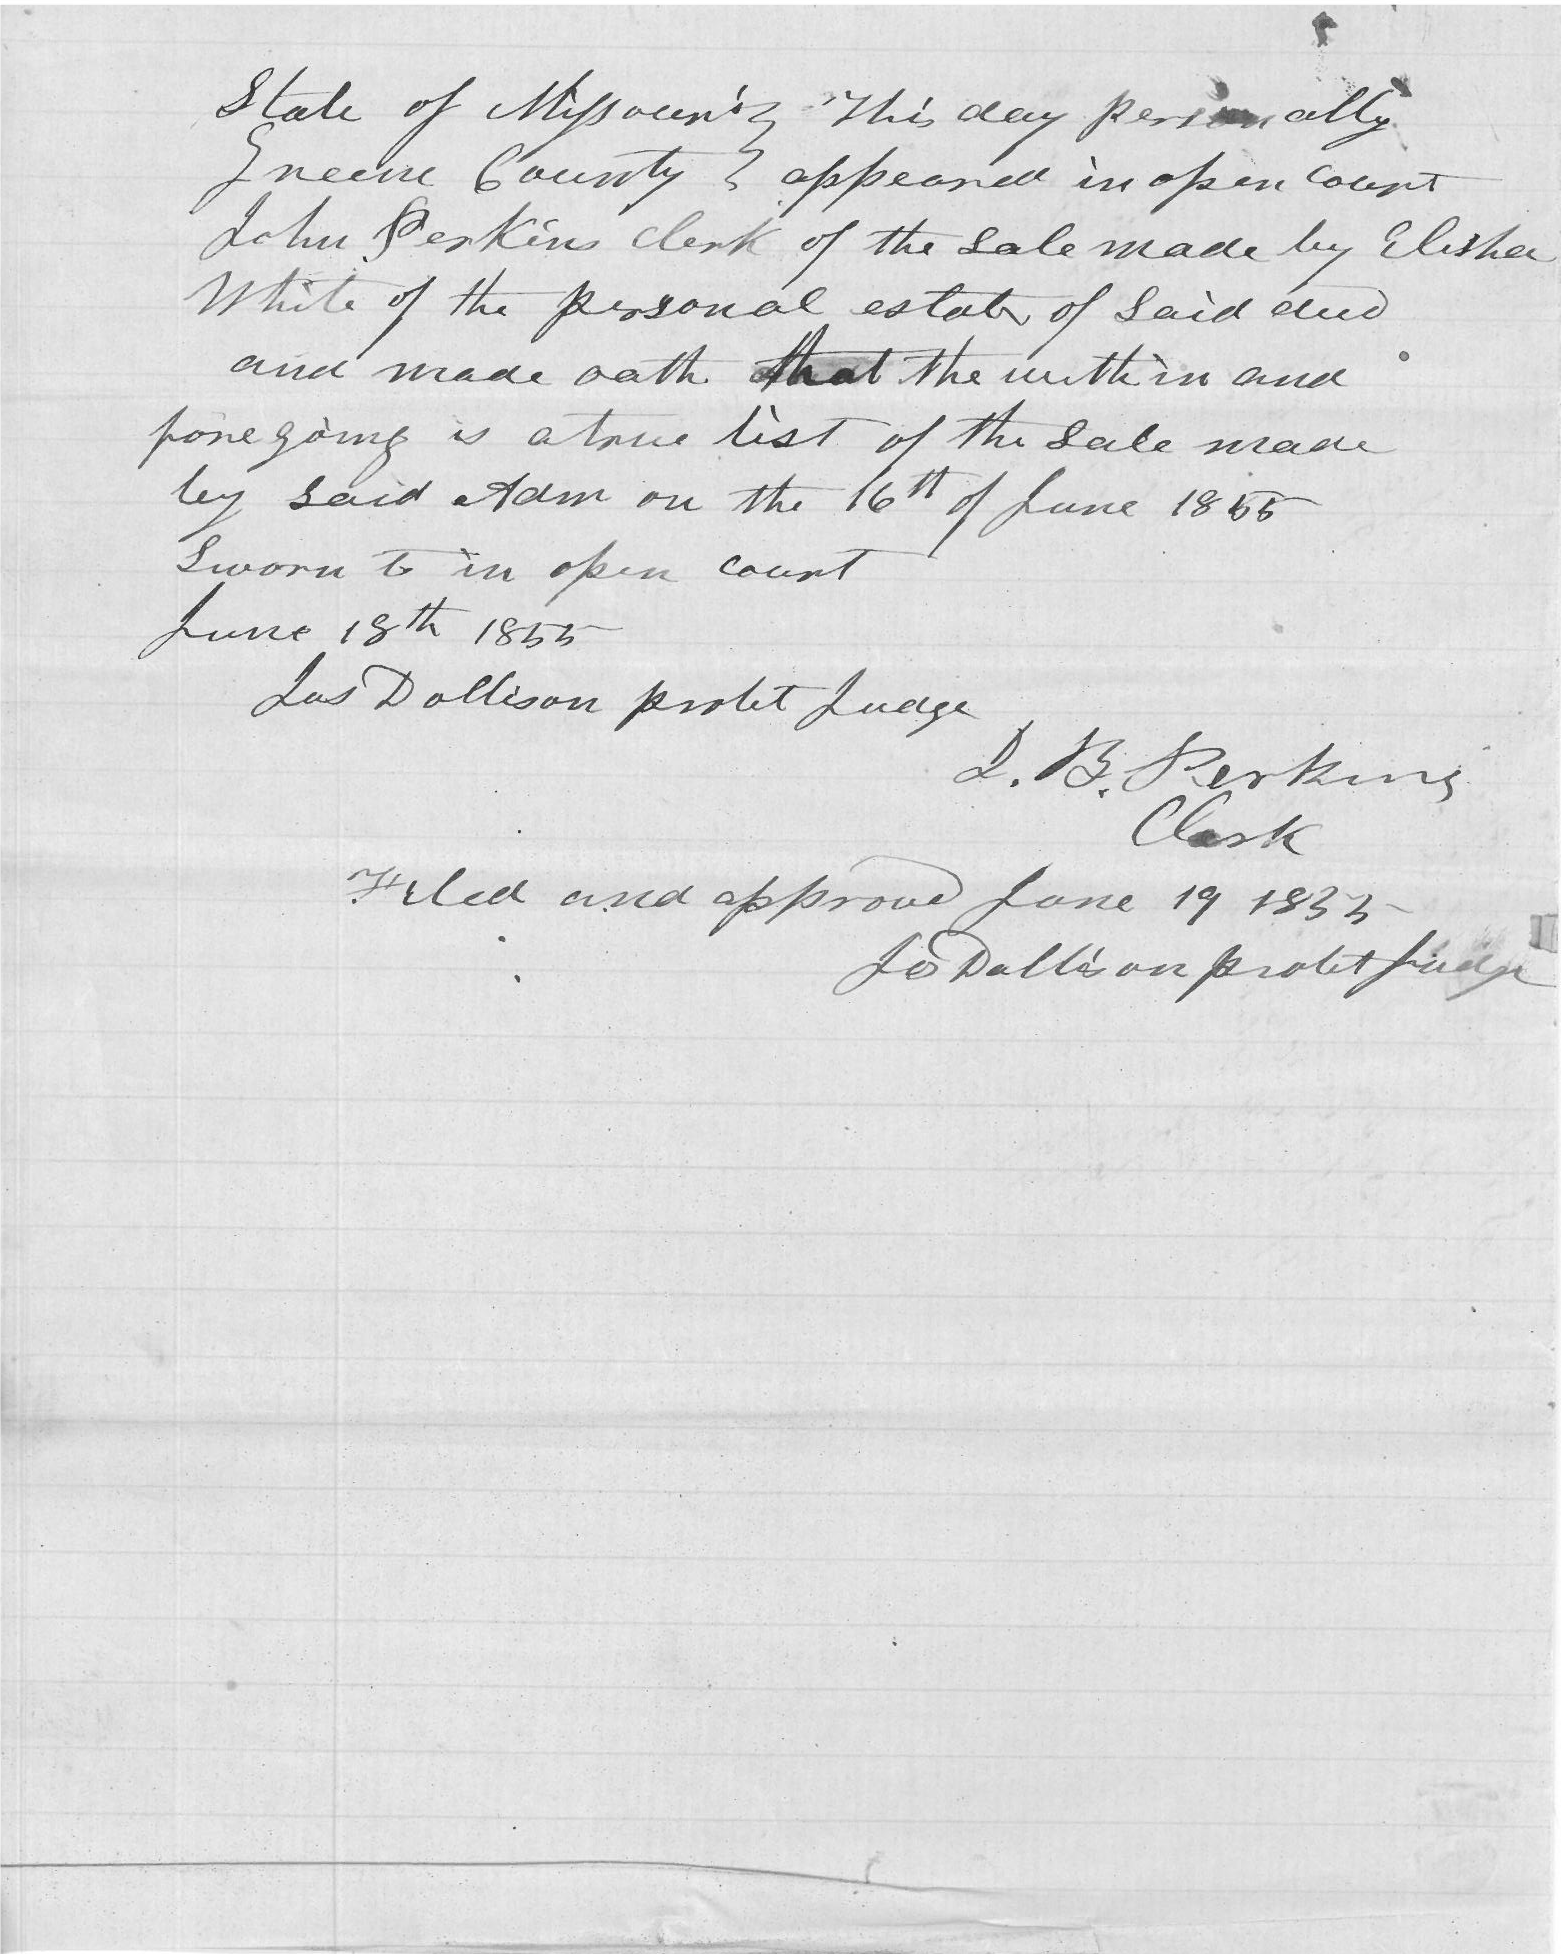 State of Missouri } This day personally
Greene County } appeared in open court
John Perkins Clerk of the sale made by Elisha
White of the personal estate of said decd
and made oath that the within and
foregoing is a true list of the sale made
by said Adm on the 16th of June 1855
Sworn to in open court
June 18th 1855
Jas Dollison probt Judge
J. B. Perkins
Clerk
Filed and approved June 19 1855
Jas Dollison probt Judge